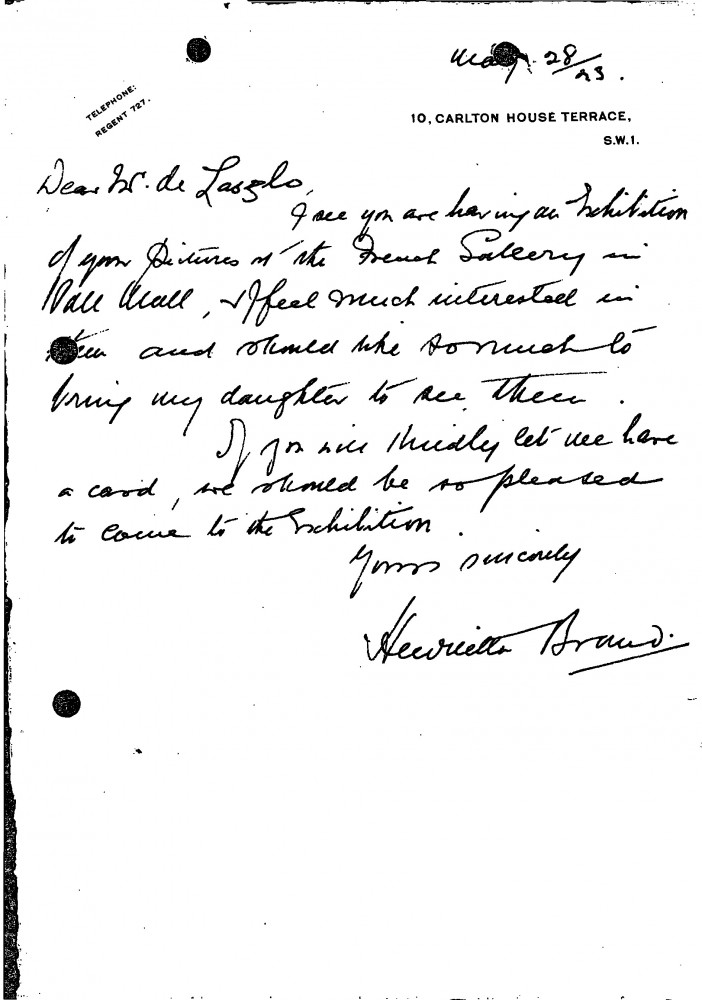 May 28/23.
TELEPHONE:
REGENT 727.
10, CARLTON HOUSE TERRACE,
S.W.1.
Dear Mr. de Laszlo,
I see you are having an Exhibition
of your Pictures at the French Gallery in
Pall Mall, & I feel much interested in
and should like so much to
bring my daughter to see them.
If you will kindly let me have
a card, we should be so pleased
to come to the Exhibition.
Yours sincerely
Henrietta Brand.